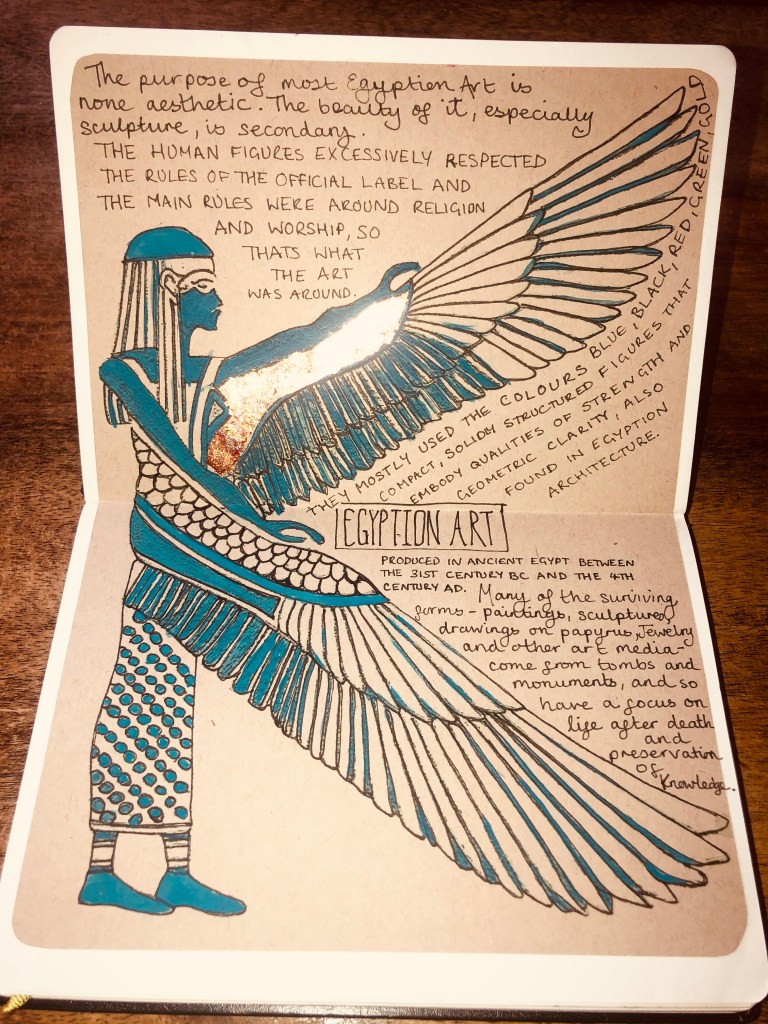 The purpose of most Egyptien Art is
none aesthetic. The beauty of it, especially
sculpture, is secondary.
THE HUMAN FIGURES EXCESSIVELY RESPECTED
THE RULES OF THE OFFICIAL LABEL AND
THE MAIN RULES WERE AROUND RELIGION
AND WORSHIP, SO
THATS WHAT
THE ART
WAS AROUND.
THEY MOSTLY USED THE COLOURS BLUE, BLACK, RED, GREEN, GOLD
COMPACT, SOLIDLY STRUCTURED FIGURES THAT
EMBODY QUALITIES OF STRENGTH AND
GEOMETRIC CLARITY, ALSO
FOUND IN EGYPTION
ARCHITECTURE.
EGYPTION ART
PRODUCED IN ANCIENT EGYPT BETWEEN
THE 31ST CENTURY BC AND THE 4TH
CENTURY AD. Many of the surviving
forms - paintings, sculptures,
drawings on papyrus, Jewelry
and other art media-
come from tombs and
monuments, and so
have a focus on
life after death
and
preservation
of
Knowledge.